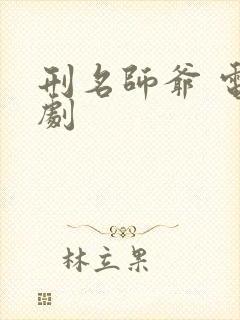 刑名師爺 電
劇
林立果